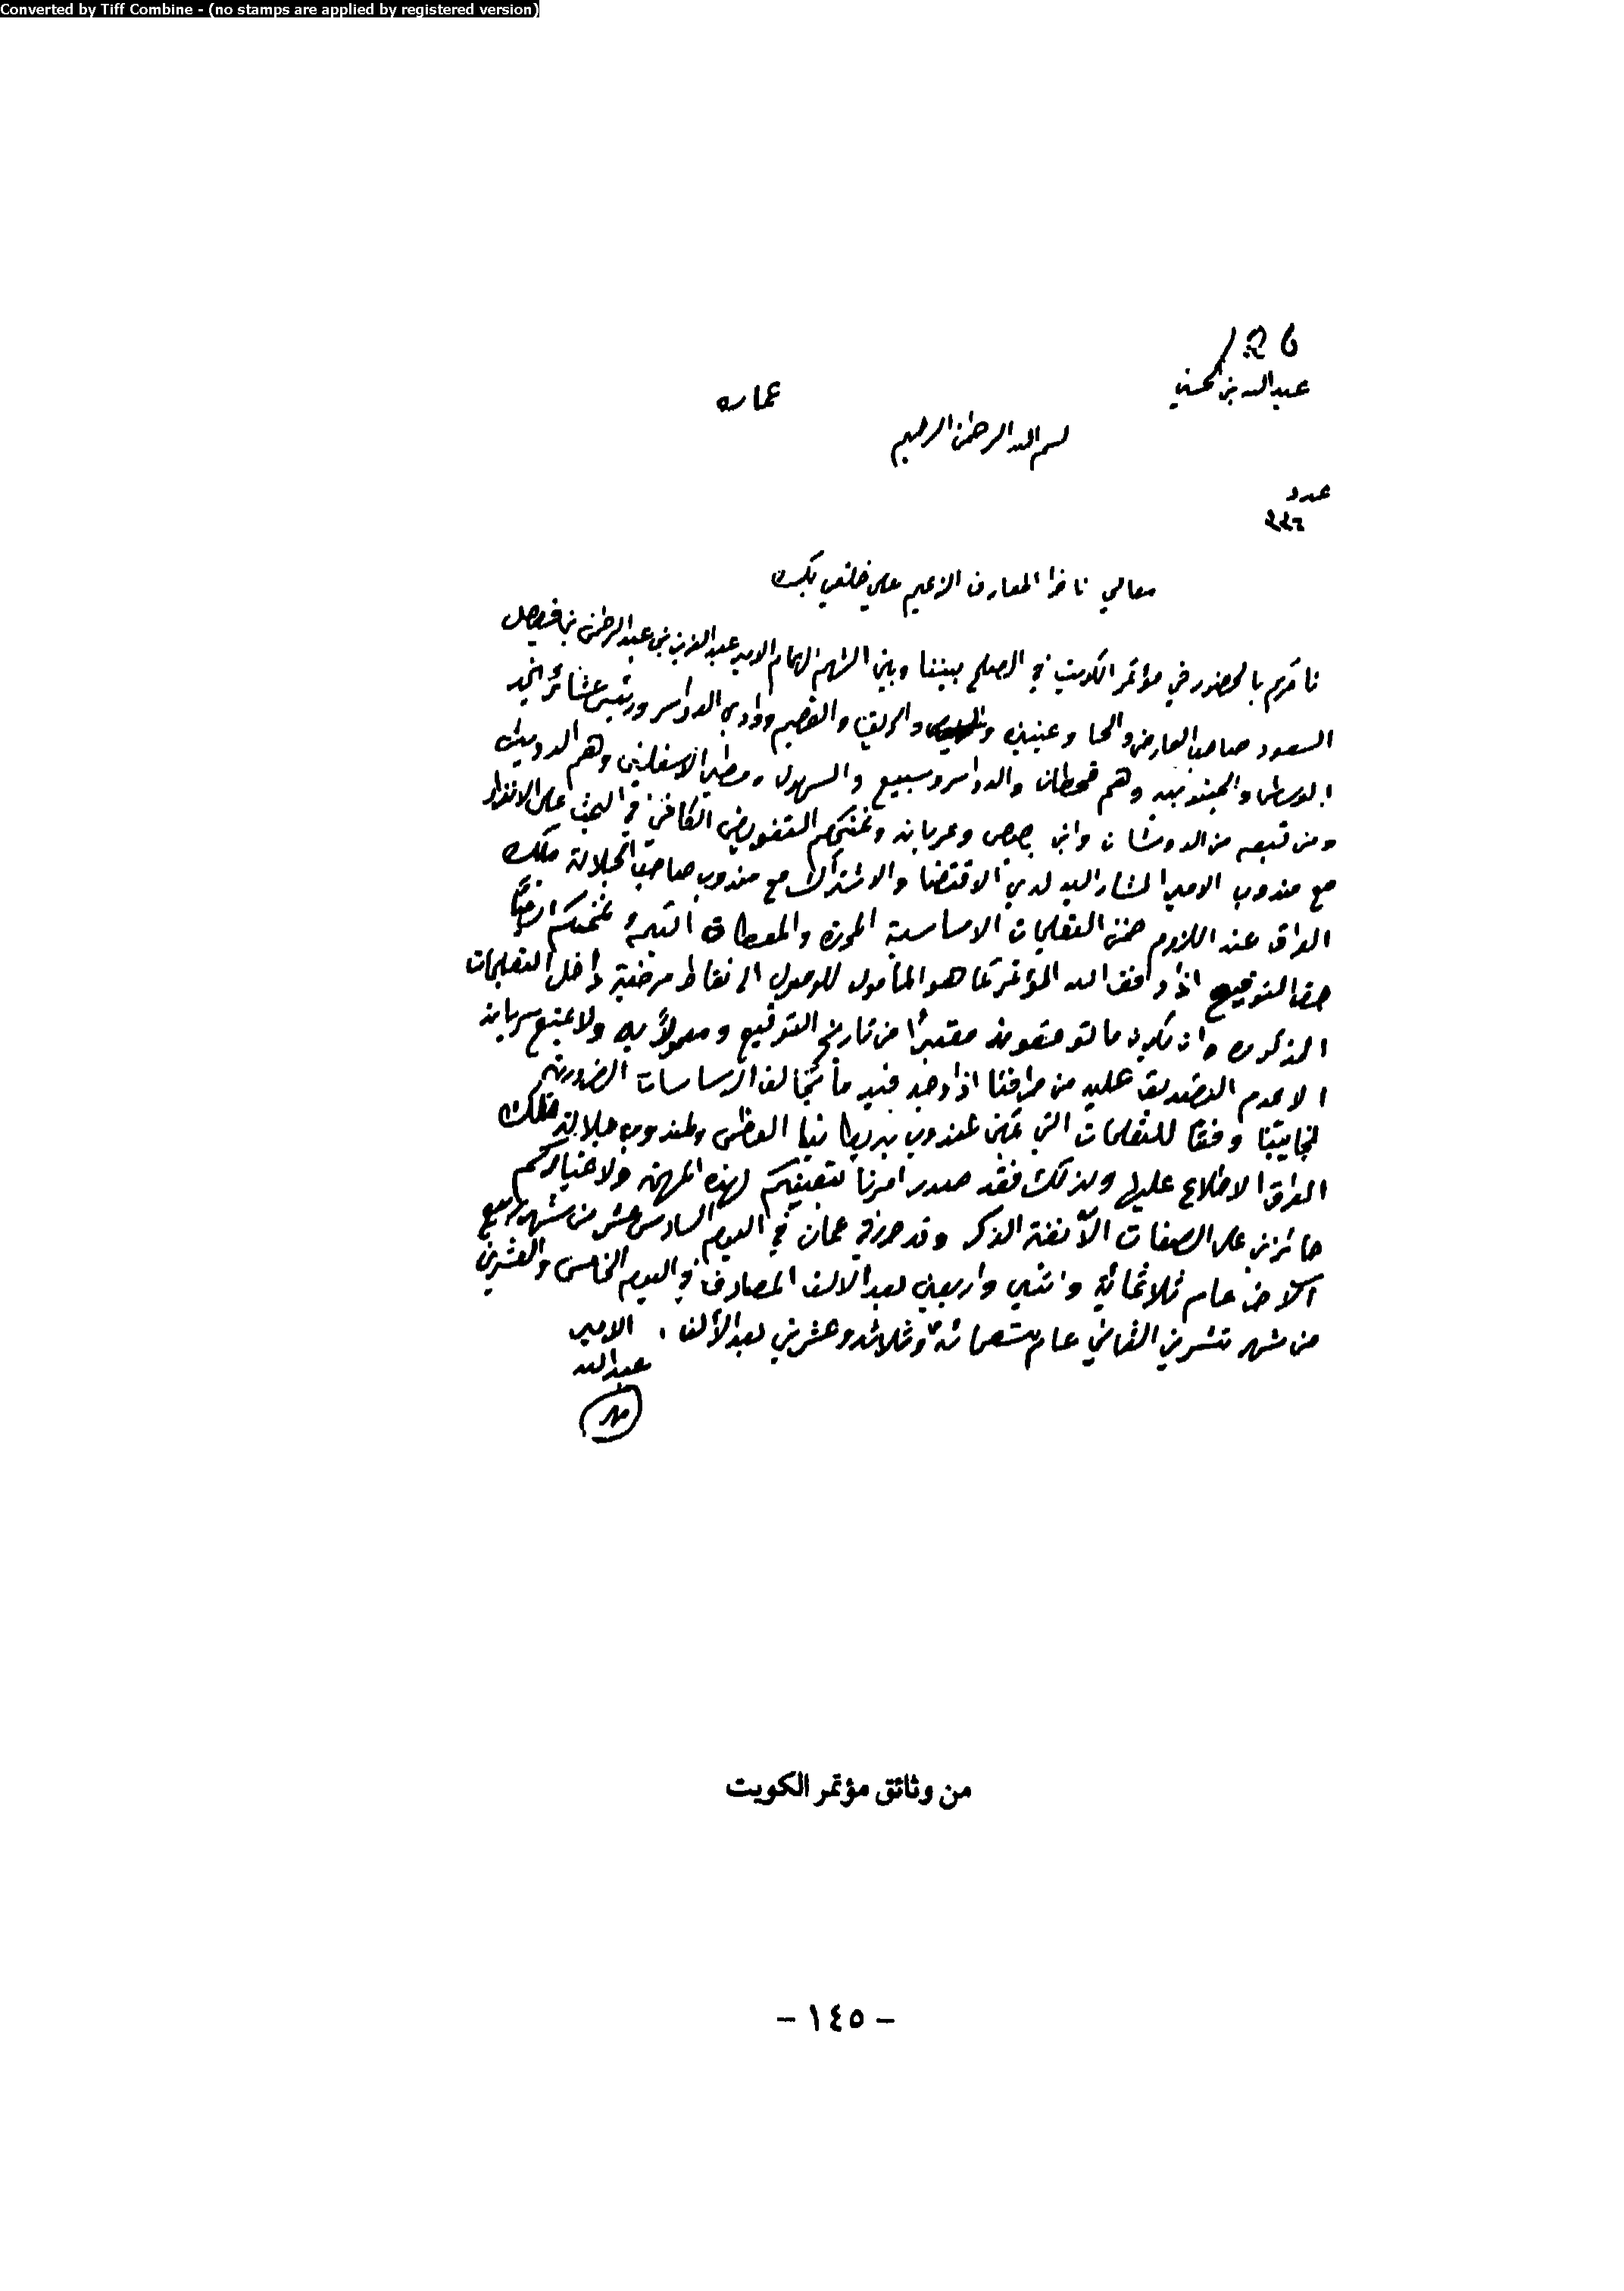 Converted by Tiff Combine - (no stamps are applied by registered version)
126
عبدالله بن الحسين
عمان
بسم الله الرحمن الرحيم
عدد
٢٢٦
معالي ناظر المعارف الزعيم علي خلقي بك
نأمركم بالحضور في مؤتمر الكويت في الصلح بيننا وبين الشهم الهمام الامير عبدالعزيز بن عبدالرحمن بن فيصل
السعود صاحب العارض والحسا وعنيزه والقصيم ووادي الدواسر ورئيس عشائر نجد
الوسطى والجنوبيه وهم قحطان والدواسر وسبيع والسهول ومطير الاسفلين وهم الدويش
ومن تبعه من الدوشان وابن بصيص وعربانه ونمنحكم التفويض الكافي في البحث على الانفراد
مع مندوب الامير المشار اليه لدى الاقتضا والاشتراك مع مندوب صاحب الجلالة ملك
العراق عند اللزوم ضمن التعليمات الاساسية المحررة والمعطاة اليكم نمنحكم ايضاً
حق التوقيع اذا وفق الله المؤتمر كما هو المأمول للوصول الى نقاط مرضية داخل التعليمات
المذكوره وان يكون ما توقعونه معتبراً من تاريخ التوقيع ومعمولاً به ولا يمنع سريانه
الا عدم التصديق عليه من طرفنا اذا وجد فيه ما يخالف الاساسات الضرورية
لجانبنا وفقا للتعليمات التي يمكن لمندوب بريطانيا العظمى ولمندوب جلالة ملك
العراق الاطلاع عليها ولذلك فقد صدر امرنا بتعيينكم لهذه المهمة ولاختياركم
حائزين على الصفات الآنفة الذكر وقد حرر في عمان في اليوم السادس عشر من شهر ربيع
الآخر عام ثلاثمائة واثنين واربعين بعد الالف المصادف في اليوم الخامس والعشرين
من شهر تشرين الثاني عام تسعمائة وثلاثة وعشرين بعد الألف . الامير
عبدالله
من وثائق مؤتمر الكويت
- ١٤٥ -